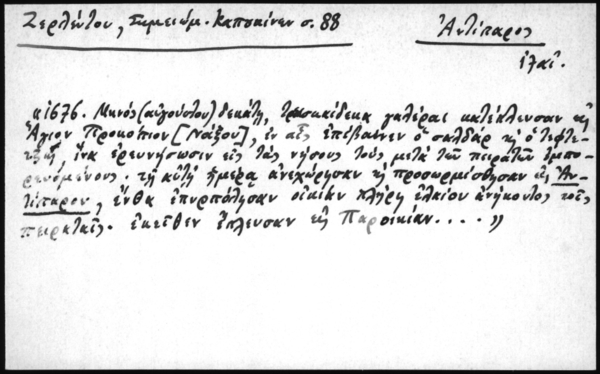 Ζερλέντου, Σημειώμ. Καπουκίνων σ. 88
Ἀντίπαρος
ἐλαῖ.
"1676. Μηνὸς (αὐγούστου) δεκάτῃ, τρισκαίδεκα γαλέραι κατέπλευσαν εἰς
Ἅγιον Προκόπιον [Νάξου], ἐν αἷς ἐπέβαινεν ὁ σαρδὰρ κ' ὁ τεφτε-
ἵνα ἐρευνήσωσιν εἰς τὰς νήσους τοὺς μετὰ τῶν πειρατῶν ἐμπο-
ρευομένους. τῇ αὐτῇ ἡμέρᾳ ἀνεχώρησαν κ' προσωρμίσθησαν εἰς Ἀν-
τίπαρον, ἔνθα ἐπυρπόλησαν οἰκίαν πλήρη ἐλαίου ἀνήκοντος τοῖς
πειραταῖς. ἐκεῖθεν ἔπλευσαν εἰς Παροικίαν.... "